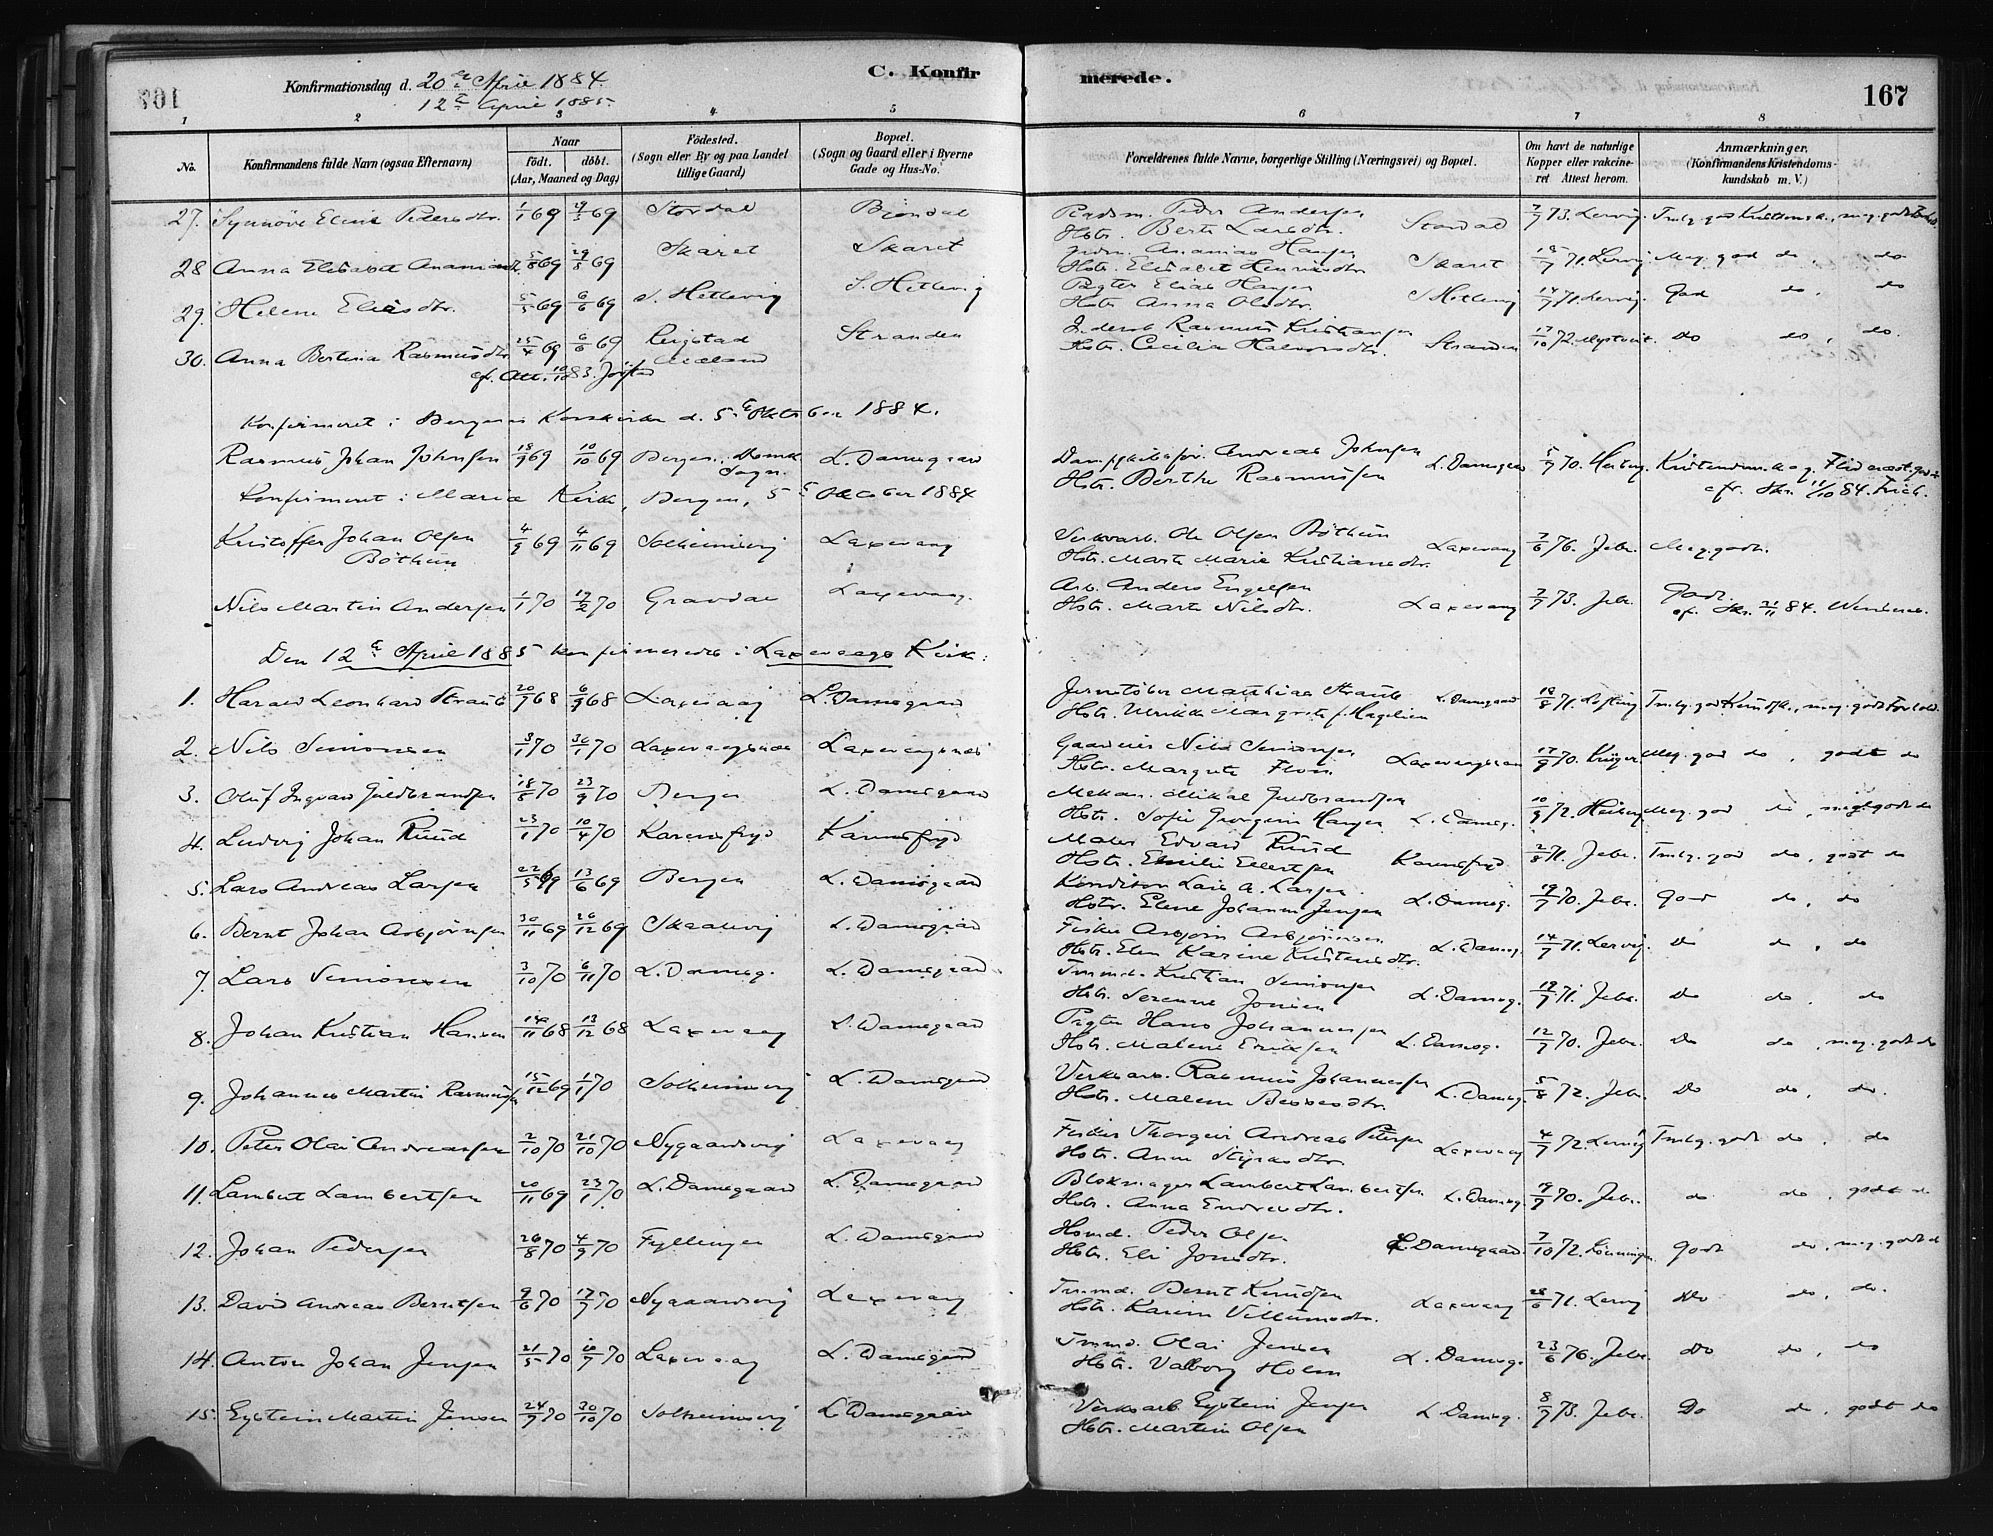 Konfirmationsdag d. 20de April 1884.
12te April 1885.
C. Konfir
merede.
167
1 2 3 4 5 6 7 8
No. Konfirmandens fulde Navn (ogsaa Efternavn) Naar födt. döbt. (Aar, Maaned og Dag) Födested. (Sogn eller By og paa Landet tillige Gaard) Bopæl. (Sogn og Gaard eller i Byerne Gade og Hus-No. Forældrenes fulde Navne, borgerlige Stilling (Næringsvei) og Bopæl. Om havt de naturlige Kopper eller vakcineret. Attest herom. Anmærkninger. (Konfirmandens Kristendomskundskab m. V.)
27. Synnöve Elisie Pedersdtr. 1/1 69 Stordal Björndal Peder Andersen
Hstr. Berte Larsdtr. Stordal 7/9 73. Lervig.
28 Anna Elisabet 5/8 69 29/8 69 Skaret Skaret Ananias Hansen
Hstr. Elisabet Skaret 71. Lervig Meg. god do, do
29. Helene Eliasdtr. 5/5 69 6/6 69 S. Hetlevig S. Hetlevig Pagter Elias Hansen
Hstr. Anna Olsdtr. S. Hetlevig 14/9 71. Lervig. God do, do
30. Anna Bertina Rasmusdtr. 25/4 69 6/6 69 Stranden Rasmus Kristiansen
Hstr. Cecilia Halvorsdtr. Stranden 17/10 72. Do do, do.
Konfirmeret i Bergens Korskirke d. 5te Oktober 1884.
Rasmus Johan Johnsen 18/9 69 10/10 69 Bergen. Domk. Sogn. L. Damsgaard Andreas Johnsen
Hstr. Berthe Rasmussen L. Damsgaard 5/7 70.
Konfirmeret i Maria Kirke, Bergen, 5te October 1884
Kristoffer Johan Olsen
Böthun 4/9 69 4/11 69 Solheimsvig Laxevaag Verksarb. Ole Olsen Böthun
Hstr. Marte Marie Kristiansdtr. Laxevaag 7/6 76. Jebe. Meg. godt.
Nils Martin Andersen 1/1 70 17/2 70 Gravdal Laxevaag. Arb. Anders Engelsen
Hstr. Marte Nilsdtr. Laxevaag 7/7 73. Jebe. Godt.
Den 12te April 1885 konfirmeredes i Laxevaags Kirke:
1. Harald Leonhard Straub 20/7 68 6/9 68 Laxevaag L. Damsgaard Jernstöber Matthias Straub
Hstr. Ulrikke Margrete f. Magelsen L. Damsgaard 18/8 71.
2. Nils Simonsen 3/1 70 30/1 70 Laxevaagsnæs Laxevaagsnæs Gaardeier Nils Simonsen
Hstr. Margrete Laxevaagsnæs 17/9 70. Krüger Meg. god do, godt do
3. Oluf Ingvar Guldbrandsen 18/8 70 23/9 70 Bergen L. Damsgaard Mekan. Mikal Guldbrandsen
Hstr. Sofie Georgine Hansen L. Damsg. 10/9 72. Heiberg Meg. god do, meg. godt do
4. Ludvig Johan Ruud 23/1 70 10/4 70 Karensfryd Karensfryd Maler Edvard Ruud
Hstr. Emilie Ellertsen Karensfryd 2/8 71. Jebe. Tmlg. god do, godt do
5. Lars Andreas Larsen 22/5 69 13/6 69 Bergen L. Damsgaard Konditor Lars A. Larsen
Hstr. Elene Johanne Jensen L. Damsg. 19/7 70. Jebe. God do, do
6. Bernt Johan Asbjörnsen 30/11 69 26/12 69 Skaalevig L. Damsgaard Fisker Asbjörn Asbjörnsen
Hstr. Elen Karine Kristensdtr. L. Damsg. 14/7 71. Lervig. Do do, do
7. Lars Simonsen 3/10 70 6/11 70 L. Damsg. L. Damsgaard Tmmd. Kristian Simonsen
Hstr. Serenne Jonsen L. Damsg. 19/7 71. Jebe. Do do, do
8. Johan Kristian Hansen 14/11 68 13/12 68 Laxevaag L. Damsgaard Pagter Hans Johannessen
Hstr. Malene Eriksen L. Damsg. 12/7 70. Jebe. Do do, meg. godt do
9. Johannes Martin Rasmussen 15/12 69 1/1 70 Solheimsvig L. Damsgaard Verksarb. Rasmus Johannessen
Hstr. Malene L. Damsg. 5/8 72. Jebe. Do do, do.
10. Peter Olai Andreassen 2/10 70 21/10 70 Nygaardsvig Laxevaag Fisker Thorgeir Andreas Petersen
Hstr. Anne Laxevaag 4/7 72. Lervig Tmlg. godt do, do
11. Lambert Lambertsen 20/11 69 23/1 70 L. Damsgaard L. Damsgaard Blokmager Lambert Lambertsen
Hstr. Anna Endresdtr. L. Damsg. 19/7 70. Jebe. do do, godt do
12. Johan Pedersen 26/8 70 4/9 70 Fyllingen L. Damsgaard Husmd. Peder Olsen
Hstr. Eli Jonsdtr. L. Damsgaard 7/10 72. Godt do, meg. godt do
13. David Andreas Berntsen 9/6 70 17/7 70 Nygaardsvig Laxevaag Tmmd. Bernt Knudsen
Hstr. Karine Villumsdtr. Laxevaag 28/6 71. Lervig Do do, do.
14. Anton Johan Jensen 21/5 70 10/7 70 Laxevaag L. Damsgaard Tmmd. Olai Jensen
Hstr. Valborg Holm L. Damsg. 23/6 76. Jebe. Do do, do
15. Eystein Martin Jensen 24/9 70 30/10 70 Solheimsvig L. Damsgaard Verksarb Eystein Jensen
Hstr. Martine Olsen L. Damsg. 8/9 73. Jebe. Do do, godt do